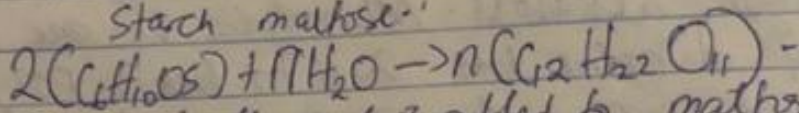 Starch maltose.
2(C₆H₁₀O5) + nH₂O -> n(C₁₂H₂₂O₁₁) -